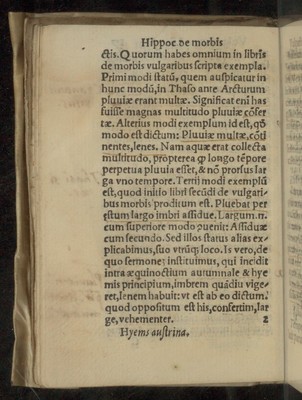 Hippoc de morbis
ctis. Quorum habes omnium in libris
de morbis vulgaribus scripta exempla.
Primi modi statũ, quem auspicatur in
hunc modũ, in Thaso ante Arcturum
pluuiæ erant multæ. Significat eni has
fuisse magnas multitudo pluuiæ cõser
tæ. Alterius modi exemplum id est, qd̃
modo est dictum: Pluuiæ multæ, cõti
nentes, lenes. Nam aquæ erat collecta
multitudo, propterea ꝙ longo tẽpore
perpetua pluuia esset, & nõ prorsus lar
ga vno tempore. Tertij modi exemplũ
est, quod initio libri secũdi de vulgari-
bus morbis proditum est. Pluebat per
æstum largo imbri assidue. Largum. n.
cum superiore modo ꝓuenit: Assiduæ
cum secundo. Sed illos status alias ex-
plicabimus, suo vtrũqʒ loco. Is vero, de
quo sermonẽ instituimus, qui incidit
intra æquinoctium autumnale & hye
mis principium, imbrem quãdiu vige-
ret, lenem habuit: vt est ab eo dictum.
quod oppositum est his, confertim, lar
ge, vehementer. 2
Hyems austrina.